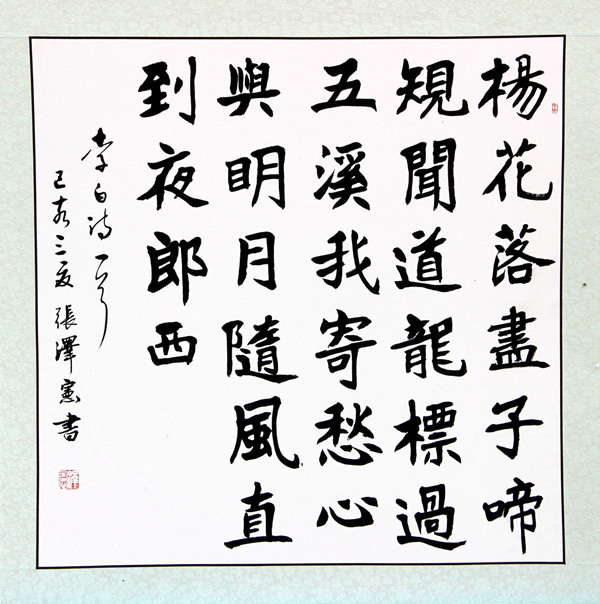 楊花落盡子啼
規聞道龍標過
五溪我寄愁心
與明月隨風直
到夜郎西
李白詩一首
己亥三夏張澤憲書